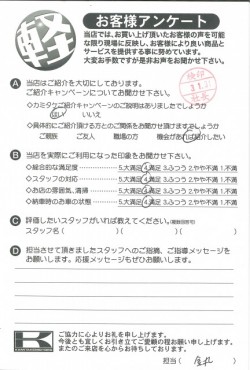 軽
お客様アンケート
当店では、お買い上げ頂いたお客様の声を可能
な限り現場に反映し、お客様により良い商品と
サービスを提供する事に努めています。
大変お手数ですが是非お声をお聞かせ下さい。
A 当店はご紹介を大切にしております。
ご紹介キャンペーンについてお聞かせ下さい。
はい いいえ
ご親族 ご友人 職場の方 機会があれば紹介したい
B 当店を実際にご利用になられた印象をお聞かせ下さい。
◇総合的な満足度 5.大満足 4.満足 3.ふつう 2.やや不満 1.不満
◇スタッフの対応 5.大満足 4.満足 3.ふつう 2.やや不満 1.不満
◇お店の雰囲気、清掃 5.大満足 4.満足 3.ふつう 2.やや不満 1.不満
◇納車時のお車の状態 5.大満足 4.満足 3.ふつう 2.やや不満 1.不満
C 評価したいスタッフがいれば教えてください。(複数回答可)
スタッフ名( )( )( )
D 担当させて頂きましたスタッフへのご指摘、ご指導メッセージを
お願いします。応援メッセージもぜひお願いします。
K
ご協力に心よりお礼を申し上げます。
今後とも宜しくお引き立てご愛顧の程お願い申し上げます。
またのご来店を心からお待ちしております。
担当( )